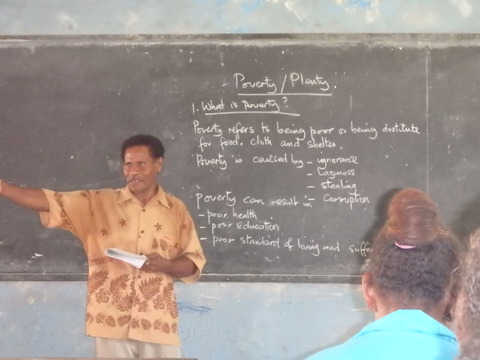 Poverty / Plenty.
1. What is poverty?
Poverty refers to being poor or being destitute
for food, cloth and shelter.
Poverty is caused by - ignorance
- Laziness
- stealing
- Corruption
Poverty can result in
- poor health
- poor education
- poor standard of living and